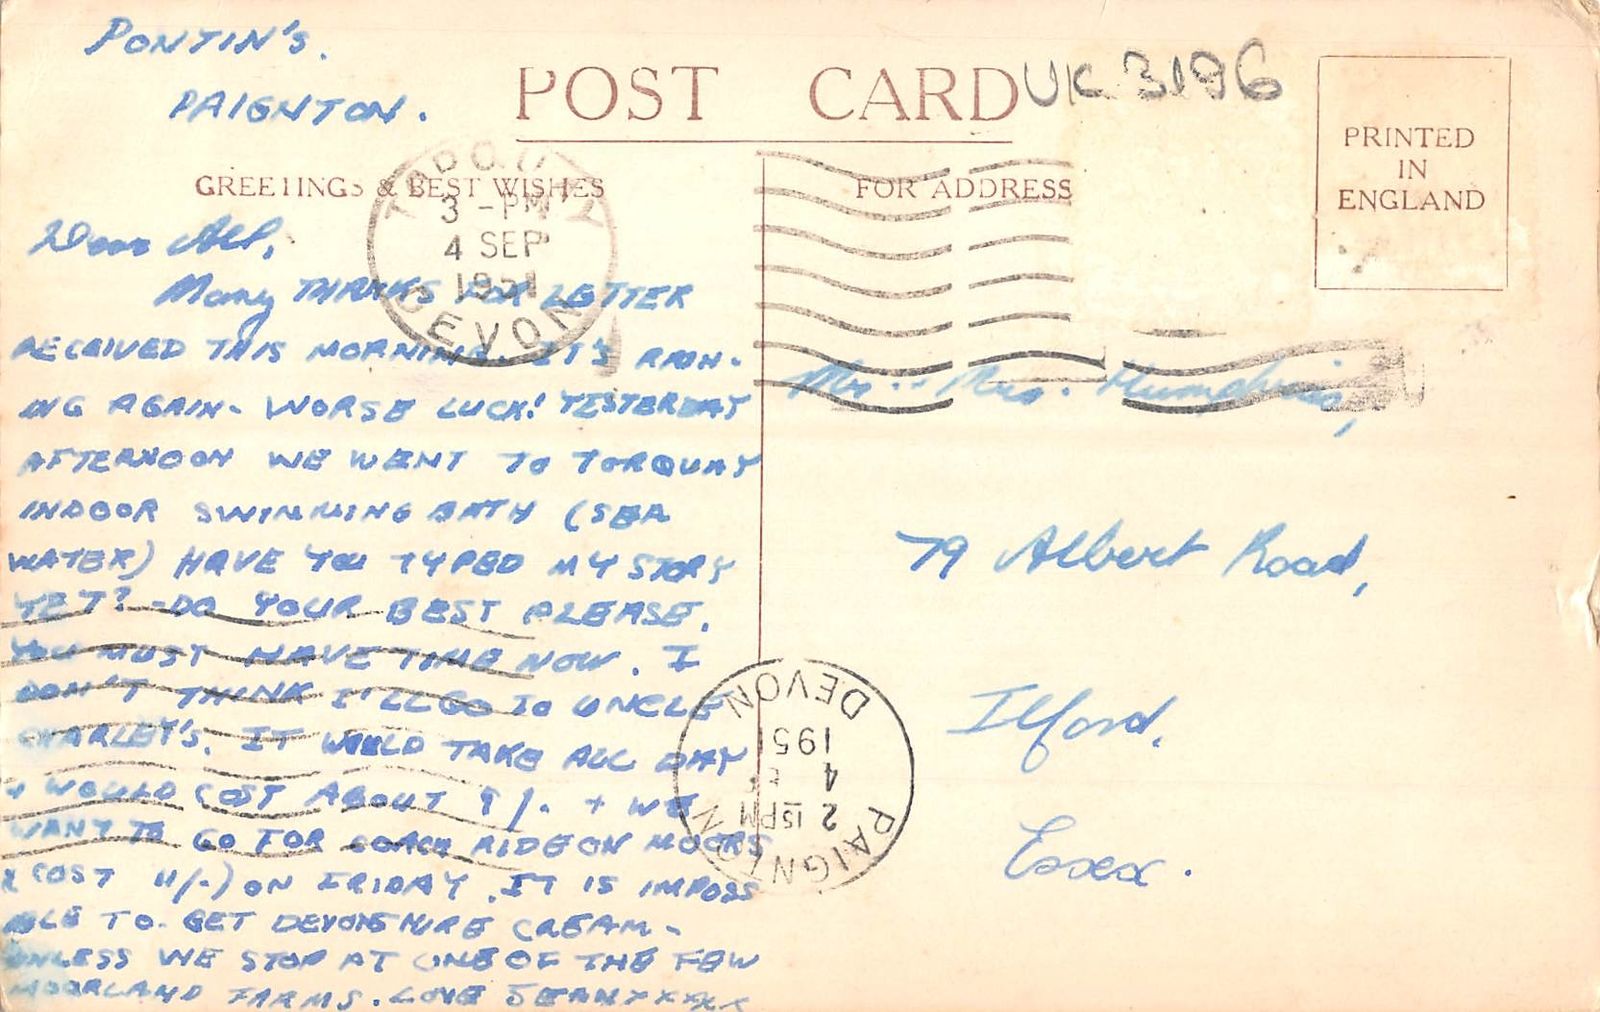 PONTIN'S.
PAIGNTON.
POST CARD
UK 3196
PRINTED
IN
ENGLAND
GREETINGS & BEST WISHES
FOR ADDRESS
TORQUAY
3 - PM
4 SEP
1951
DEVON
Dear All,
Many THANKS FOR LETTER
RECEIVED THIS MORNING. IT'S RAIN-
ING AGAIN- WORSE LUCK! YESTERDAY
AFTERNOON WE WENT TO TORQUAY
INDOOR SWIMMING BATH (SEA
WATER) HAVE YOU TYPED MY STORY
YET? -DO YOUR BEST PLEASE.
YOU MUST HAVE TIME NOW. I
DON'T THINK I'LL GO TO UNCLE
CHARLEY'S. IT WOULD TAKE ALL DAY
+ WOULD COST ABOUT 9/- + WE
WANT TO GO FOR COACH RIDE ON MOORS
(COST 11/-) ON FRIDAY. IT IS IMPOSS
BLE TO GET DEVONSHIRE CREAM-
UNLESS WE STOP AT ONE OF THE FEW
MOORLAND FARMS. LOVE JEAN XXXXX
Mr. Mrs. Humphris,
79 Albert Road,
Ilford.
Essex.
PAIGNTON
2 15 PM
4
1951
DEVON